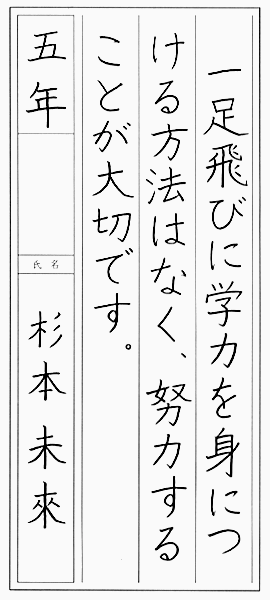 一足飛びに学力を身につ
ける方法はなく、努力する
ことが大切です。
五年
氏名
杉本未來